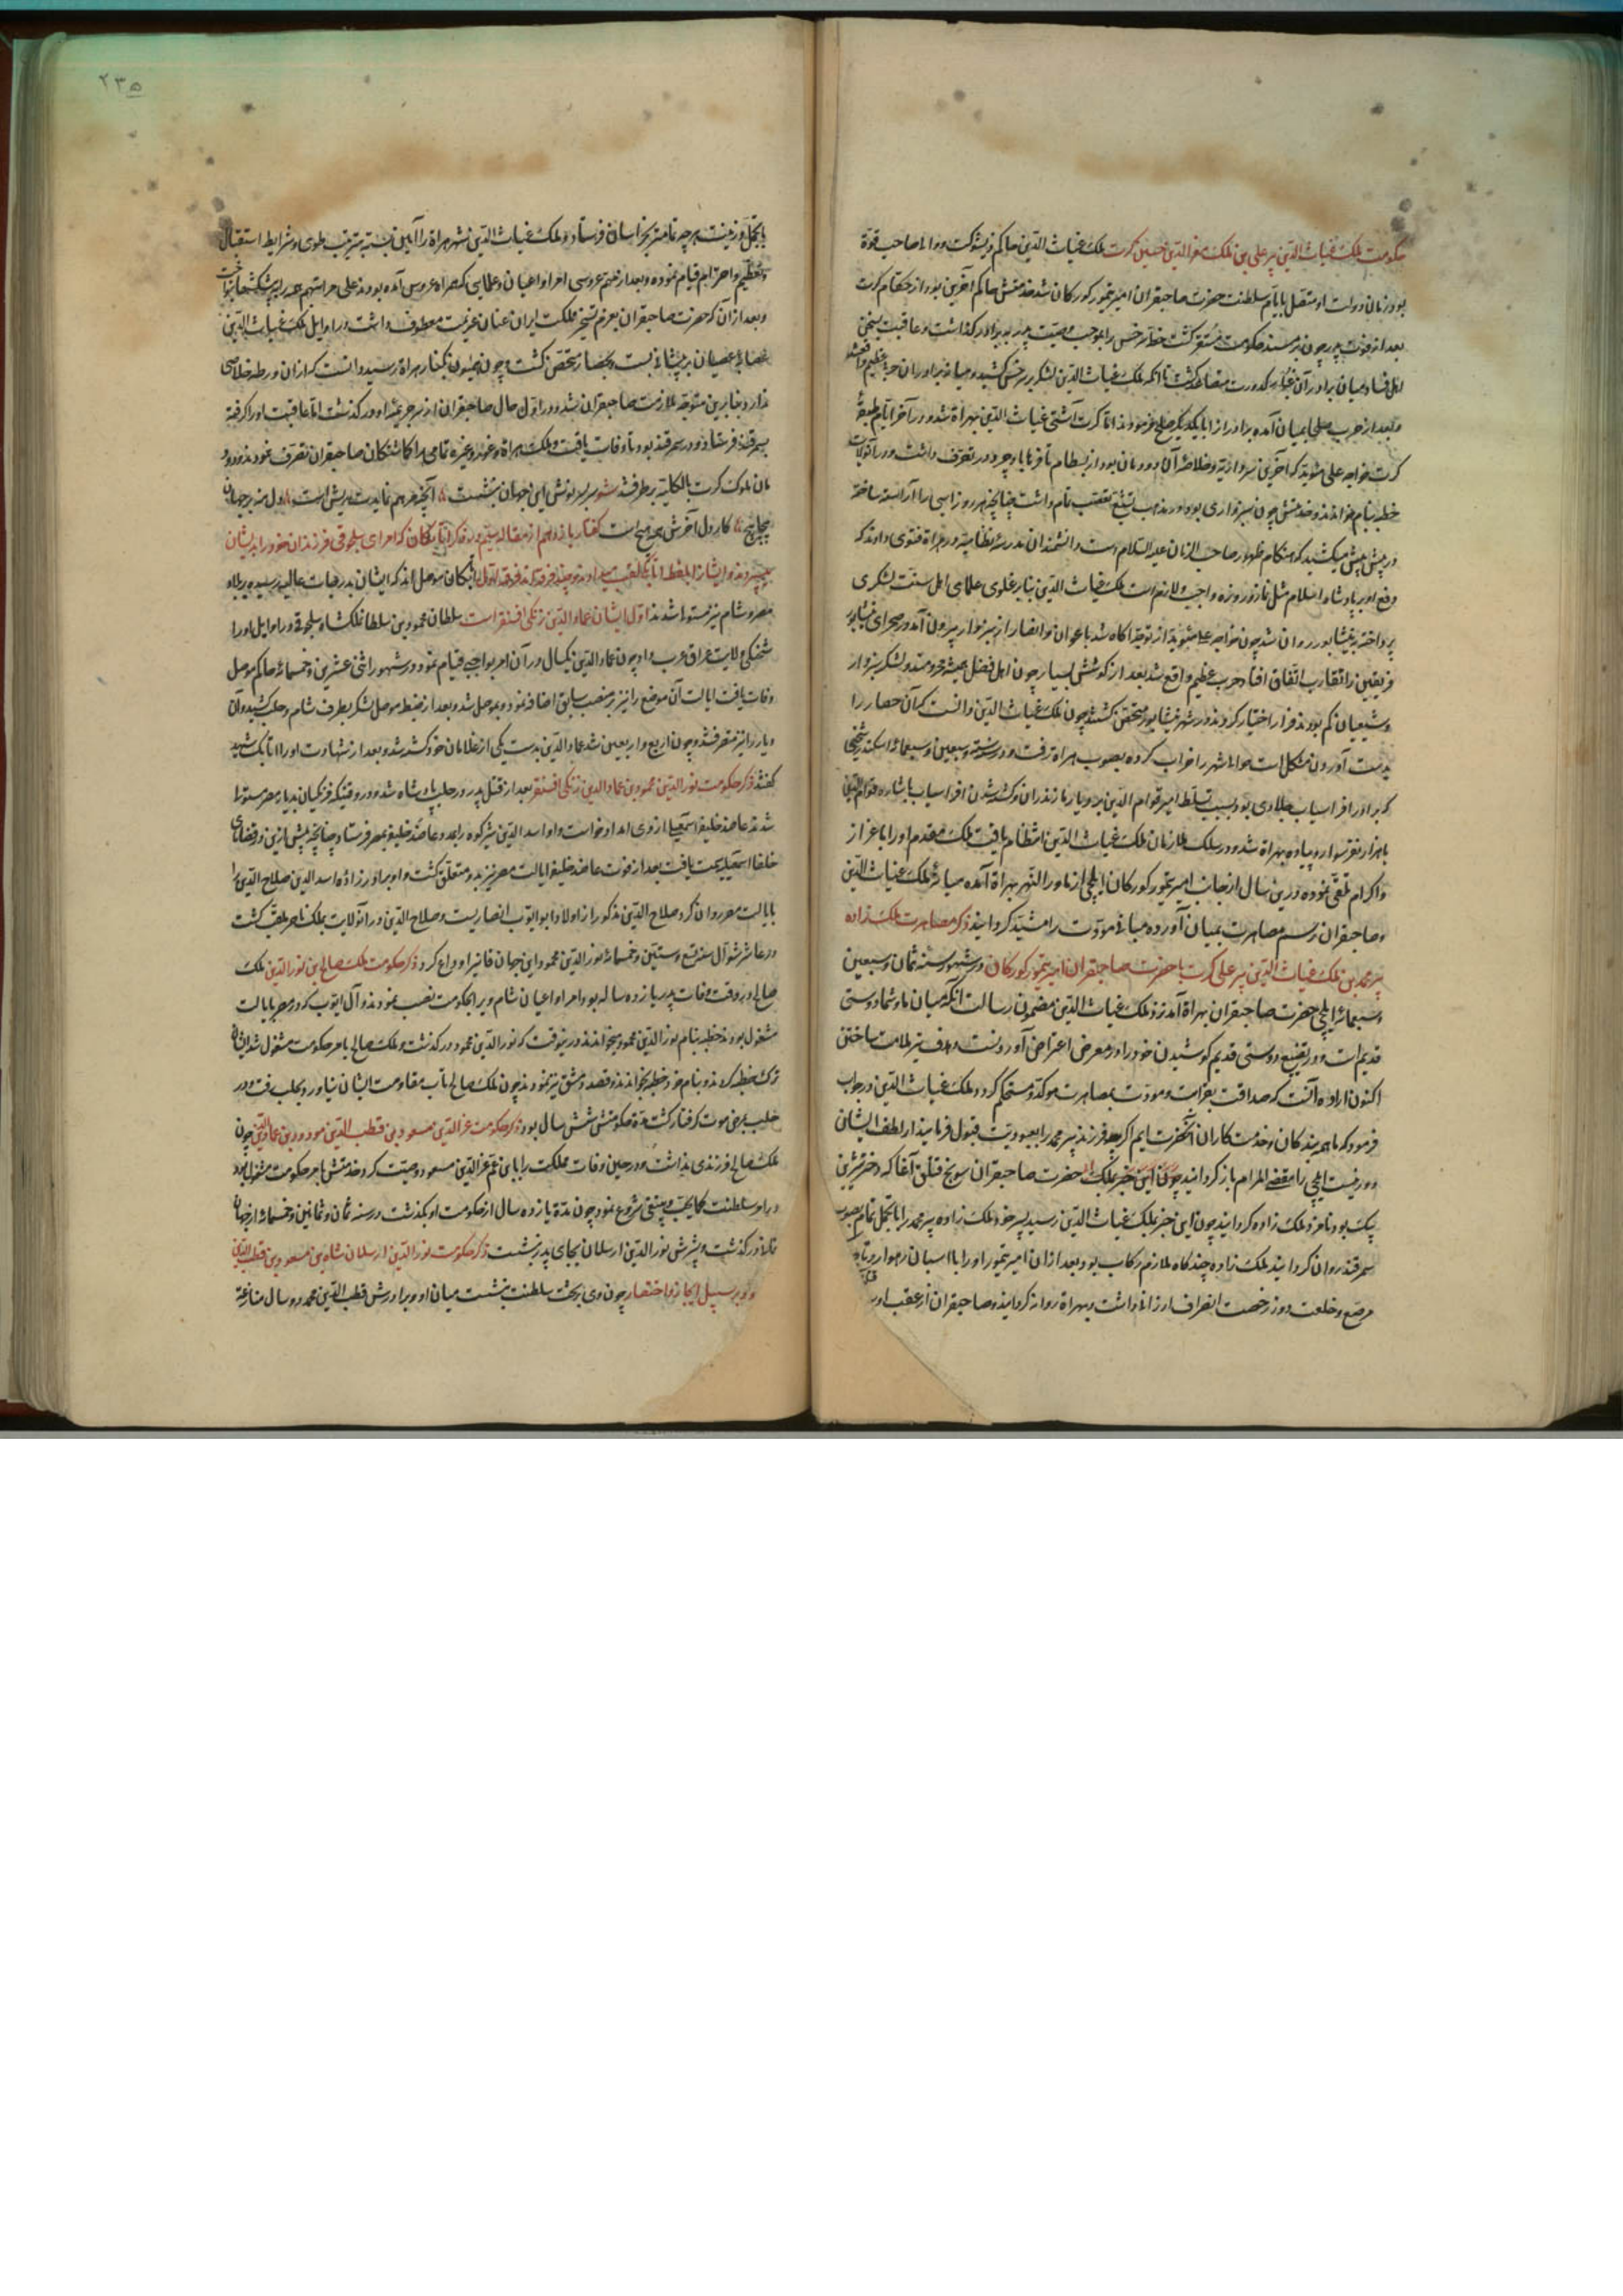 حکومت ملک غیاث الدین پیر علی بن ملک معز الدین حسین کرت ملک غیاث الدین حاکم ذیشوکت و والا صاحب قوة
بود زمان دولت او متصل بایام سلطنت حضرت صاحبقران امیر تیمور کورکان شد خدمتش حاکم آخرین بود از حکام کرت
بعد از فوت پدر چون بر مسند حکومت مستقر کشت خطه سرخس را بموجب وصیت پدر به برادر کذاشت و عاقبت بسخن
اهل فساد میان برادران غبار کدورت متصاعد کشت تا انکه ملک غیاث الدین لشکر بر سرخس کشید و میانه برادران حرب عظیم واقع شد
و بعد از حرب صلح بمیان آمده برادر از ابا یکدیکر صلح فرمودند اما کرت آشتی غیاث الدین بهراة شد و در آخر ایام طبقه
کرت خواجه علی موید که آخرین سربداریه و خلاصه آن دودمان بود از بسطام تا فرهاباد جرد در تصرف داشت و در آنولایت
خطبه بنام خواندند و خدمتش چون سبزواری بود و در مذهب تشیع تعصب تمام داشت چنانچه هر روز اسبی را آراسته ساخته
در پیش پیش میکشید که هنکام ظهور صاحب الزمان علیه السلام است دانشمندان مدرسه نظامیه در هراة فتوی دادند که
دفع او بر پادشاه اسلام مثل نماز و روزه واجب و لازم است ملک غیاث الدین بنابر غلوی علمای اهل سنت لشکری
پرداخته به نیشابور روان شد چون خواجه علی موید از توجه آکاه شد با اعوان و انصار از سبزوار بیرون آمد در صحرای نیشابور
فریقین را تقارب اتفاق افتاد حرب عظیم واقع شد بعد از کوشش بسیار چون اهل فضل همیشه محرومند و لشکر سبزوار
و شیعیان کم بودند فرار اختیار کردند و در شهر نیشابور متحصن کشتند چون ملک غیاث الدین دانست که آن حصار را
بدست آوردن مشکل است حوالی شهر را خراب کرده بصوب هراة رفت و در سنه سبعین و سبعمائه اسکندر شیخی
که برادر افراسیاب جلاوی بود بسبب تسلط امیر قوام الدین بر دیار مازندران و کشته شدن افراسیاب باشاره قوام الدین
با هزار نفر سوار و پیاده بهراة شد و در سلک ملازمان ملک غیاث الدین انتظام یافت ملک مقدم او را باعزاز
و اکرام تلقی نموده و درین سال از جانب امیر تیمور کورکان ایلچی از ماوراء النهر بهراة آمده میانه ملک غیاث الدین
و صاحبقران رسم مصاهرت بمیان آورده مبانی مودت را مشید کردانید ذکر مصاهرت ملک زاده
پیر محمد بن ملک غیاث الدین پیر علی کرت با حضرت صاحبقران امیر تیمور کورکان در شهور سنه ثمان و سبعین
و سبعمائه ایلچی حضرت صاحبقران بهراة آمد نزد ملک غیاث الدین مضمون رسالت آنکه میان ما و شما دوستی
قدیم است و در تضییع دوستی قدیم کوشیدن خود را در معرض اعتراض آوردنست و هدف تیر ملامت ساختن
اکنون اراده آنست که صداقت بقرابت و مودت بمصاهرت موکد و مستحکم کردد ملک غیاث الدین در جواب
فرمود که ما همه بندکان و خدمتکاران آنحضرت ایم اکر بنده فرزند پیر محمد را بعبودیت قبول فرمایند از لطف ایشان
دور نیست ایلچی را مقضی المرام باز کردانید چون این خبر بملک حضرت صاحبقران سونج قتلق آغا که دختر شیرین
بیک بود نامزد ملک زاده کردانید چون این خبر بملک غیاث الدین رسید پسر خود ملک زاده پیر محمد را با تجمل تمام بصوب
سمرقند روان کردانید ملک زاده چند کاه ملازم رکاب بود بعد از ان امیر تیمور او را با اسپان رهوار و تاج
مرصع و خلعت دوز رخصت انصراف ارزانی داشت و بهراة روانه کردانید و صاحبقران از عقب او
۲۳۵
با تجمل و زینت هر چه تمامتر بخراسان فرستاد و ملک غیاث الدین شهر هراة را آیین بسته بترتیب طوی و شرایط استقبال
و تعظیم و احترام قیام نموده و بعد از ختم عروسی امرا و اعیان و عظمایی که همراه عروس آمده بودند علی مراتبهم همه را پیشکشها
و بعد از آن که حضرت صاحبقران بعزم تسخیر مملکت ایران عنان عزیمت معطوف داشت در اوایل ملک غیاث الدین
عصابه عصیان بر پیشانی بست و بحصار متحصن کشت و چون همیون بکنار هراة رسید دانست که از ان ورطه خلاصی
ندارد بنابرین متوجه ملازمت صاحبقران شد و در اول حال صاحبقران از سر جریمه او در کذشت اما عاقبت او را کرفته
بسمرقند فرستاد و در سمرقند بود تا وفات یافت و ملک هراة و غور و غیره تمامی را کماشتکان صاحبقران تصرف نمودند و دود
مان ملوک کرت بالکلیه بر طرف شد
کفتار یازدهم از مقاله سیم در ذکر اتابکان که امرای سلجوقی فرزندان خود را بدیشان
میسپردند و ایشانرا بلفظ اتابک لقب میدادند و چند فرقه اند فرقه اول اتابکان موصل اند که ایشان بدرجات عالیه رسیده بر بلاد
مصر و شام نیز مستولی شدند اول ایشان عماد الدین زنکی اقسنقر است سلطان محمود بن سلطان ملکشاه سلجوقی در اوایل او را
شحنکی ولایت عراق عرب داد چون عماد الدین یکسال در آن امر بواجبی قیام نمود و در شهور اثنی عشرین و خمسمائه حاکم موصل
وفات یافت ایالت آن موضع را نیز بر منصب سابق اضافه نمود و بموصل شد و بعد از ضبط موصل لشکر بطرف شام و حلب کشید و آن
دیار را نیز متصرف شد و چون اربع و اربعین شد عماد الدین بدست یکی از غلامان خود کشته شد و بعد از شهادت او را اتابک شهید
کفتند ذکر حکومت نور الدین محمود بن عماد الدین زنکی اقسنقر بعد از قتل پدر در حلب پادشاه شد و در وقتیکه فرنکیان بدیار مصر مستولی
شدند عاضد خلیفه اسمعیلیه از وی امداد خواست و او اسد الدین شیرکوه را بمدد عاضد خلیفه بمصر فرستاد چنانچه پیش ازین در قضایای
خلفا اسمعیلیه سمت یافت بعد از فوت عاضد خلیفه ایالت مصر نیز بدو متعلق کشت و او برادر زاده اسد الدین صلاح الدین را
بایالت مصر روان کرد صلاح الدین مذکور از اولاد ابو ایوب انصاریست و صلاح الدین در آنولایت بملک ناصر ملقب کشت
در عاشر شوال سنه تسع و ستین و خمسمائه نور الدین محمود این جهان فانی را وداع کرد ذکر حکومت ملک صالح بن نور الدین ملک
صالح در وقت وفات پدر یازده ساله بود امرا و اعیان شام ویرا بحکومت نصب نمودند و آل ایوب که در مصر بایالت
مشغول بودند خطبه بنام نور الدین محمود میخواندند درینوقت که نور الدین محمود در کذشت و ملک صالح بامر حکومت مشغول شد ایشان
ترک خطبه کردند و بنام خود خطبه بخواندند و قصد دمشق نیز نمودند چون ملک صالح تاب مقاومت ایشان نیاورد بحلب رفت و در
حلب بمرض موت کرفتار کشت مدة حکومتش شش سال بود ذکر حکومت عز الدین مسعود بن قطب الدین مودود بن عماد الدین چون
ملک صالح فرزندی نداشت و در حین وفات مملکت را بابن عم عز الدین مسعود وصیت کرد خدمتش بامر حکومت مشغول بود
در امر سلطنت کما یجب و ینبغی شروع نمود چون مدة یازده سال از حکومت او بکذشت در سنه ثمان و ثمانین و خمسمائه از جهان
در کذشت و پسرش نور الدین ارسلان بجای پدر بنشست ذکر حکومت نور الدین ارسلان شاه بن مسعود بن قطب الدین
بر سبیل ایجاز و اختصار چون وی بر تخت سلطنت بنشست میان او و برادرش قطب الدین محمد دو سال منازعة